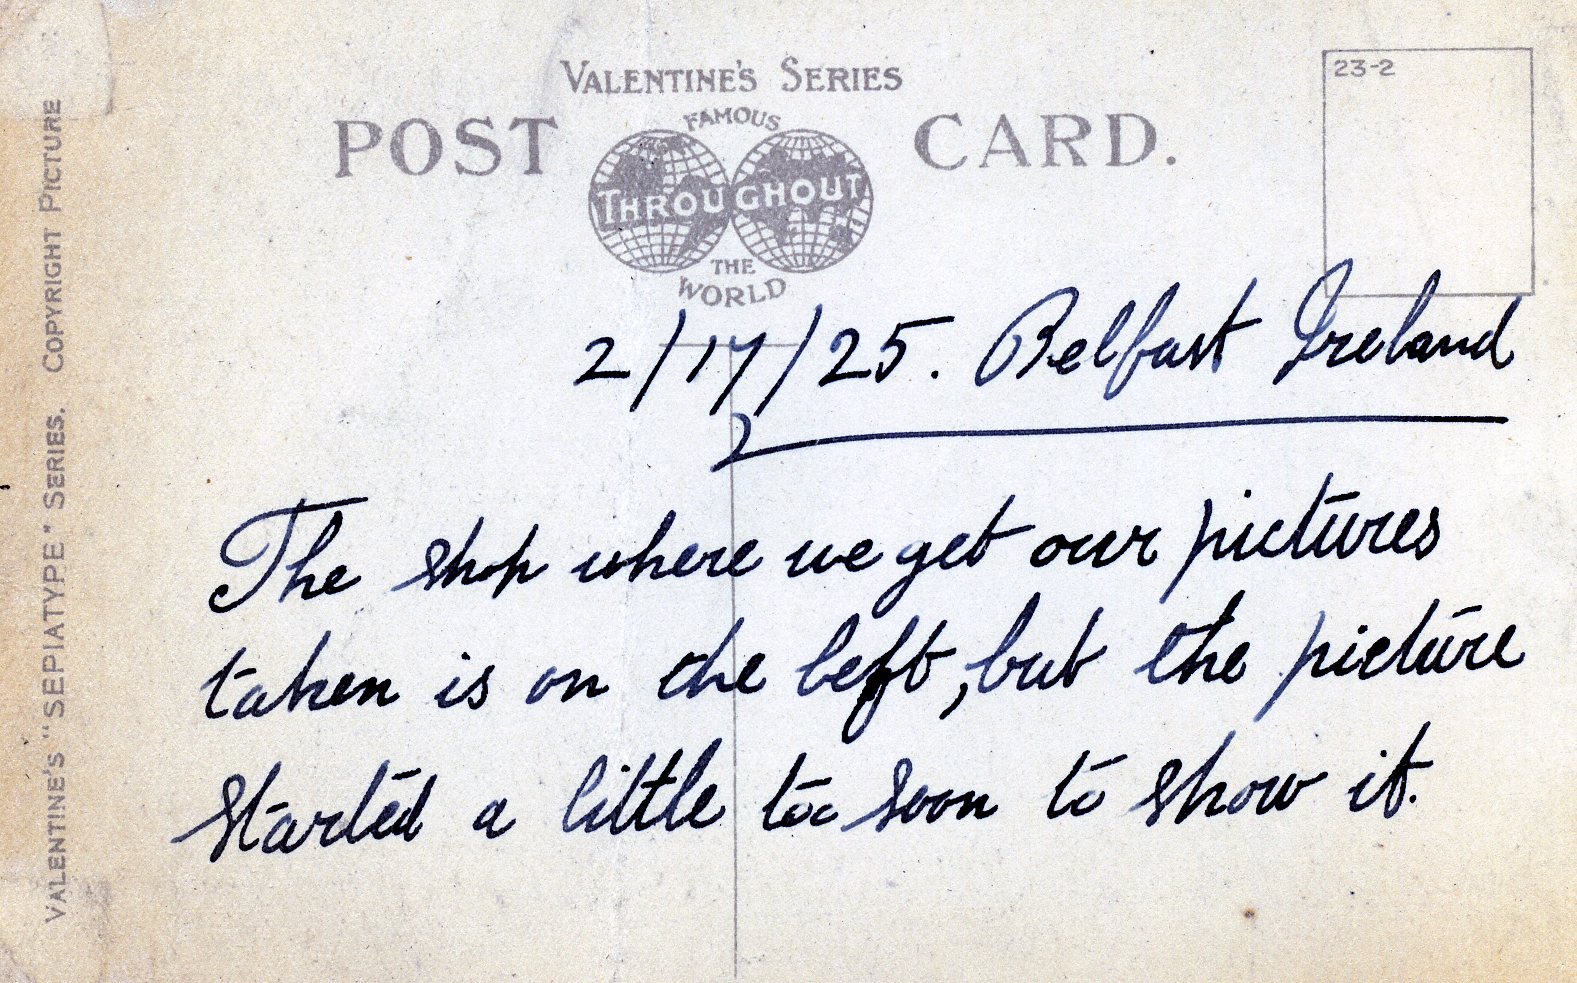 VALENTINE'S SERIES
23-2
POST CARD.
FAMOUS
THROUGHOUT
THE
WORLD
2/17/25. Belfast Ireland
The shop where we get our pictures
taken is on the left, but the picture
started a little too soon to show it.
VALENTINE'S "SEPIATYPE" SERIES. COPYRIGHT PICTURE